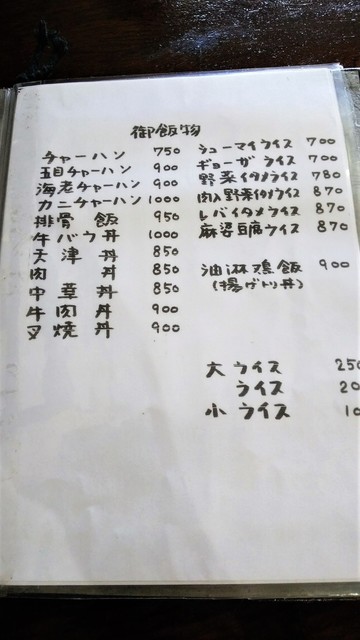 御飯物
チャーハン 750
五目チャーハン 900
海老チャーハン 900
カニチャーハン 1000
排骨飯 950
牛バラ丼 1000
天津丼 850
肉丼 850
中華丼 850
牛肉丼 900
叉焼丼 900
シューマイライス 700
ギョーザライス 700
野菜イタメライス 780
肉入野菜イタメライス 870
レバイタメライス 870
麻婆豆腐ライス 870
油淋鶏飯 900
(揚げトリ丼)
大ライス 250
ライス 20
小ライス 10